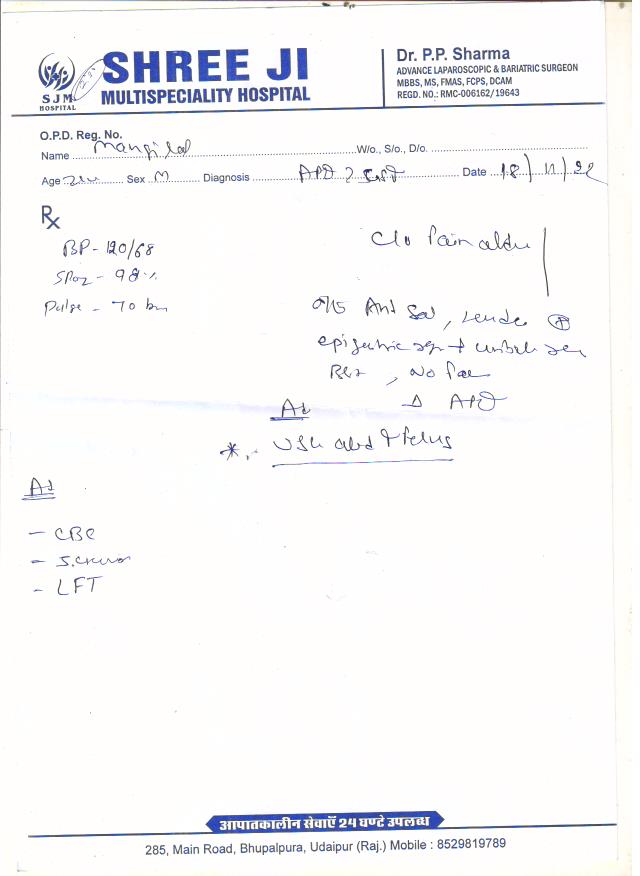 SJM
HOSPITAL
SHREE JI
MULTISPECIALITY HOSPITAL
Dr. P.P. Sharma
ADVANCE LAPAROSCOPIC & BARIATRIC SURGEON
MBBS, MS, FMAS, FCPS, DCAM
REGD. NO.: RMC-006162/19643
O.P.D. Reg. No.
Name Mangi lal W/o., S/o., D/o.
Age Sex M Diagnosis APD ? Date 18/11/22
Rx
C/o Pain abdm
BP - 120/68
SPO2 - 98 %
Pulse - 70 bm
O/E P/A Sof, tende +
epigastric + umbili
No
Δ APD
Ad
*. USG abd & Pelvis
Ad
- CBC
- S.Creat
- LFT
आपातकालीन सेवाएँ 24 घण्टे उपलब्ध
285, Main Road, Bhupalpura, Udaipur (Raj.) Mobile : 8529819789